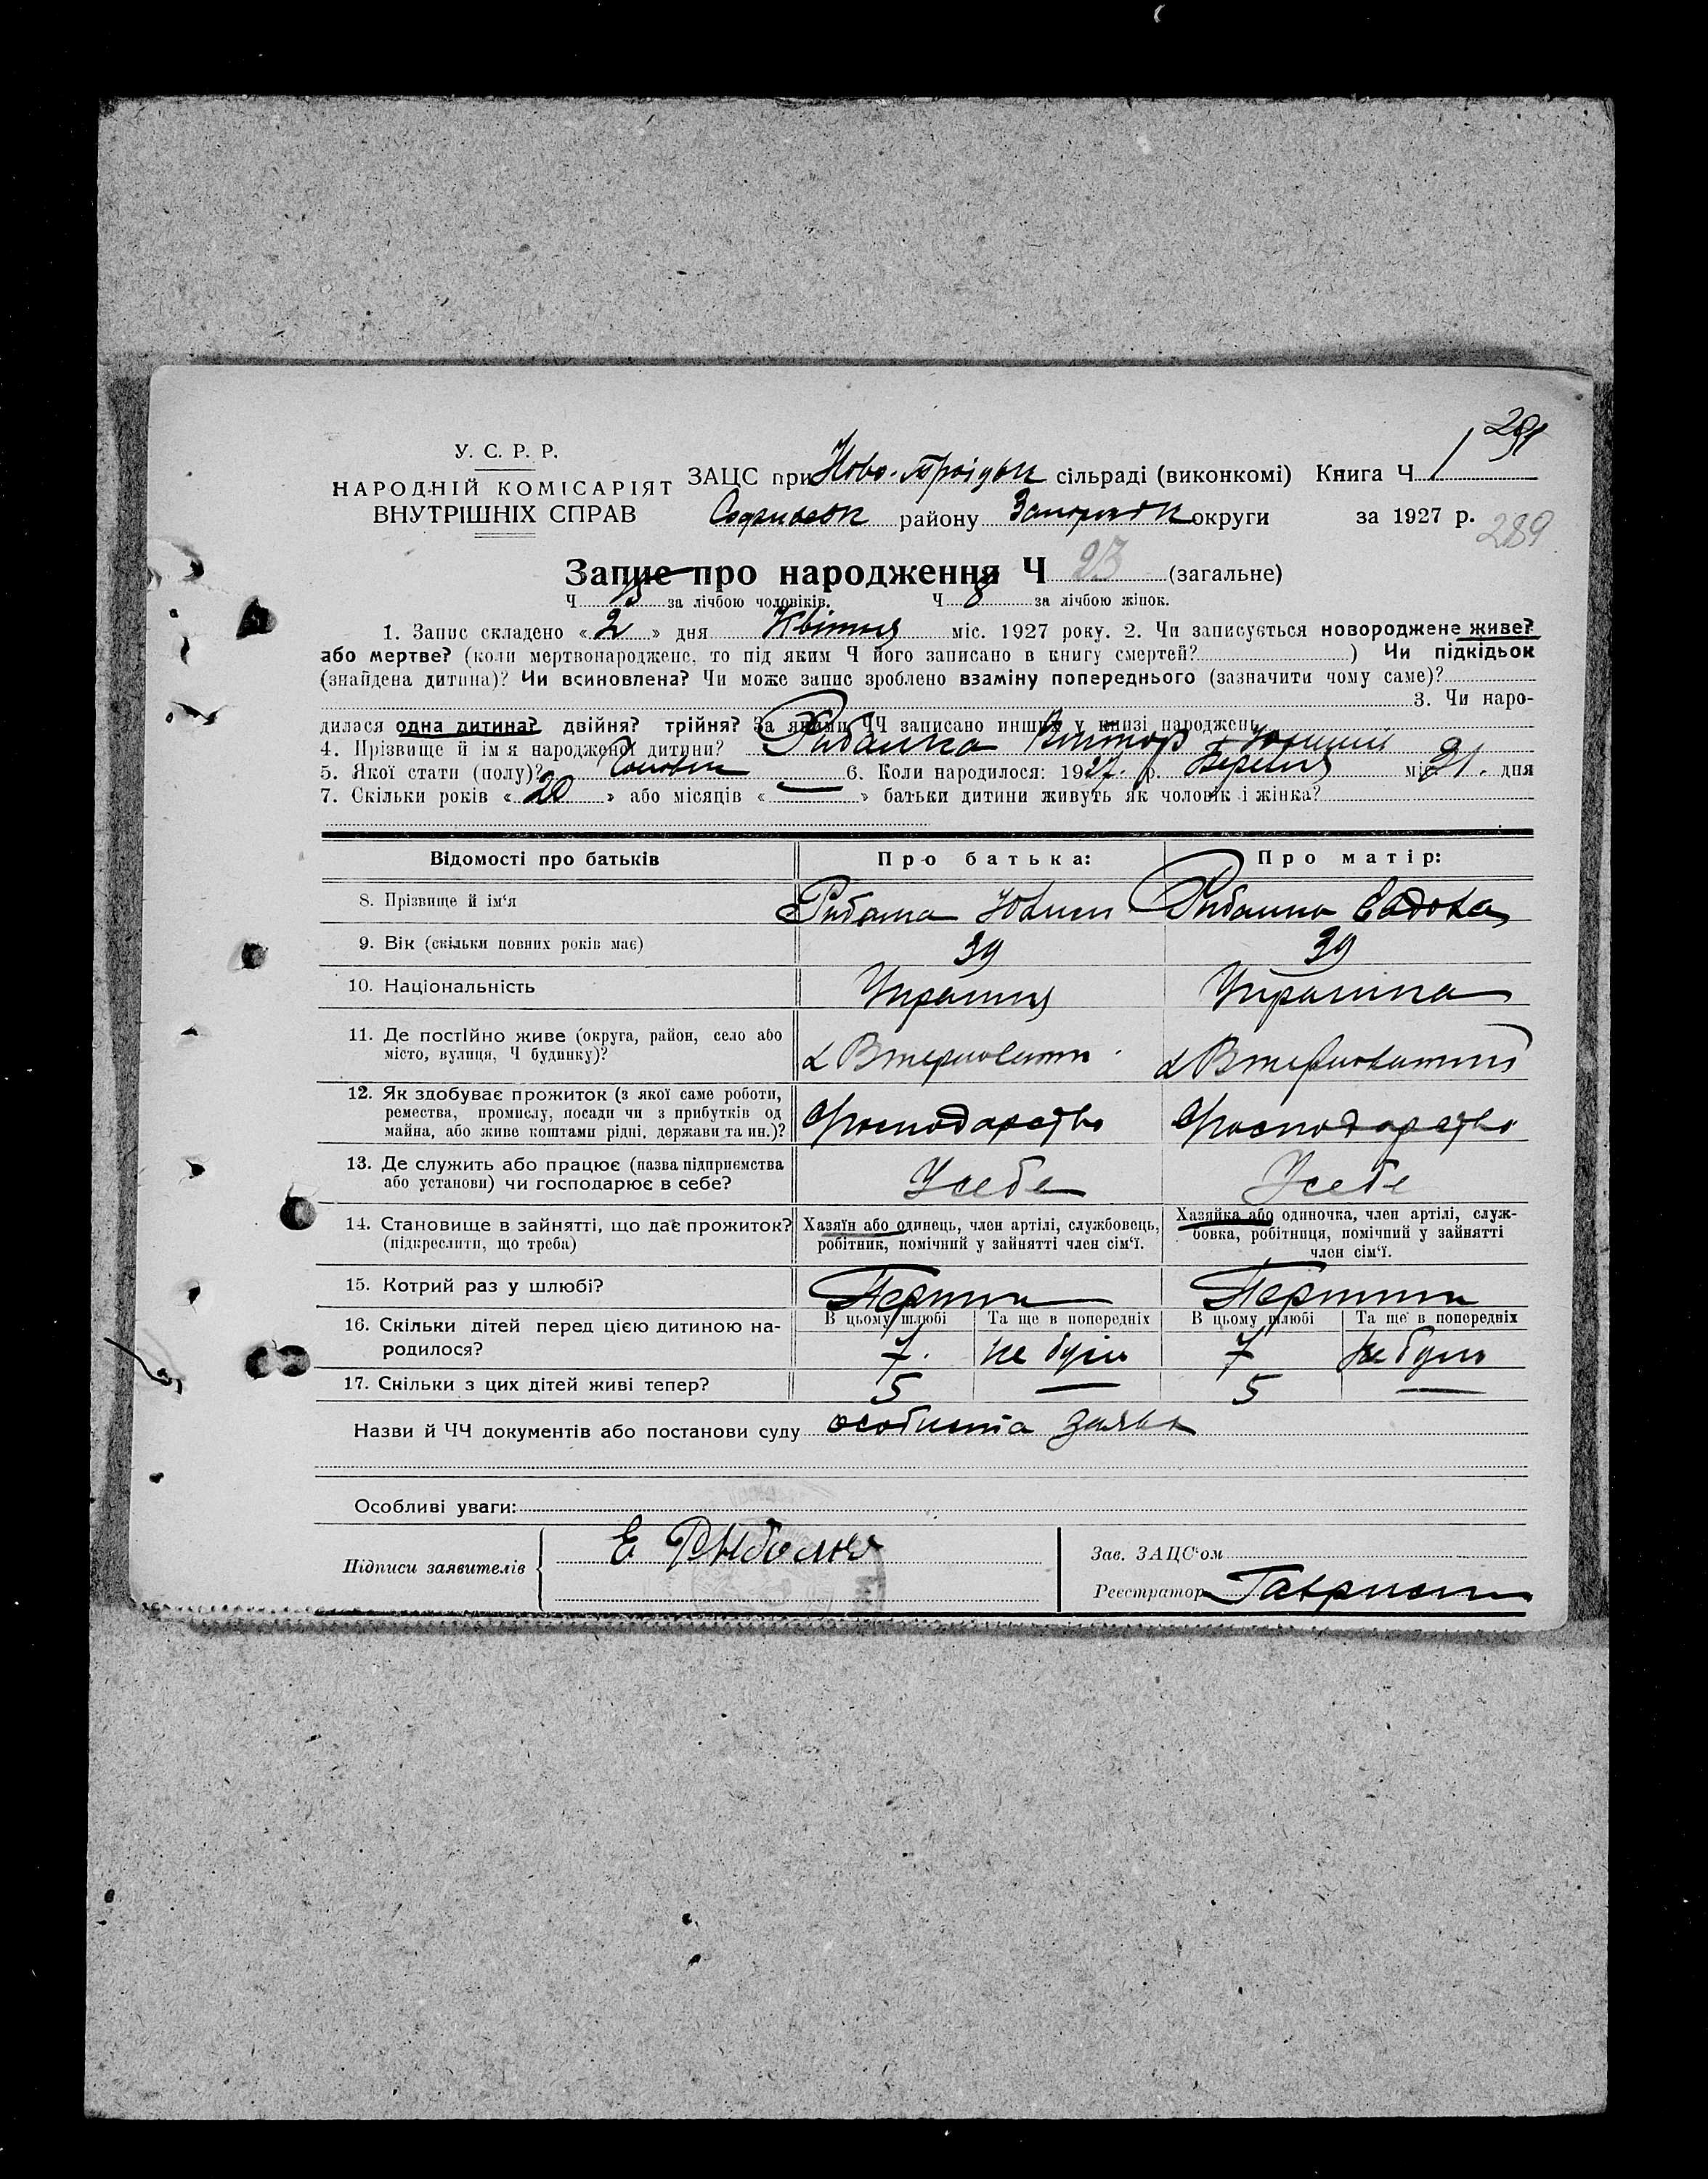 291
У. С. Р. Р.
НАРОДНІЙ КОМІСАРІЯТ
ВНУТРІШНІХ СПРАВ
ЗАЦС при Ново-Троідьк сільраді (виконкомі) Книга Ч 1
району округи за 1927 р.
289
Запис про народження Ч 23 (загальне)
Ч за лічбою чоловіків. Ч 8 за лічбою жінок.
1. Запис складено « 2 » дня Квітня міс. 1927 року. 2. Чи записується новороджене живе?
або мертве? (коли мертвонароджене, то під яким Ч його записано в книгу смертей? ) Чи підкідьок
(знайдена дитина)? Чи всиновлена? Чи може запис зроблено взаміну попереднього (зазначити чому саме)?
3. Чи наро-
дилася одна дитина? двійня? трійня? За якими ЧЧ записано инших у книзі народжень
4. Прізвище й ім'я народженої дитини? Рибалка Віктор
5. Якої стати (полу)? 6. Коли народилося: 1927 р. Березня міс. 31. дня
7. Скільки років « 20 » або місяців « — » батьки дитини живуть як чоловік і жінка?
Відомості про батьків
Про батька:
Про матір:
8. Прізвище й ім'я
Рибалка
Рибалка Евдоха
9. Вік (скільки повних років має)
39
39
10. Національність
11. Де постійно живе (округа, район, село або
місто, вулиця, Ч будинку)?
12. Як здобуває прожиток (з якої саме роботи,
ремества, промислу, посади чи з прибутків од
майна, або живе коштами рідні, держави та ин.)?
Господарство
Господарство
13. Де служить або працює (назва підприємства
або установи) чи господарює в себе?
Усебе
Усебе
14. Становище в зайнятті, що дає прожиток?
(підкреслити, що треба)
Хазяїн або одинець, член артілі, службовець,
робітник, помічний у зайнятті член сім'ї.
Хазяйка або одиночка, член артілі, служ-
бовка, робітниця, помічний у зайнятті
член сім'ї.
15. Котрий раз у шлюбі?
16. Скільки дітей перед цією дитиною на-
родилося?
В цьому шлюбі
Та ще в попередніх
В цьому шлюбі
Та ще в попередніх
7.
не було
7
не було
17. Скільки з цих дітей живі тепер?
5
—
5
—
Назви й ЧЧ документів або постанови суду особиста заява
Особливі уваги:
Підписи заявителів
Е Рыбалко
Зав. ЗАЦС'ом
Реєстратор